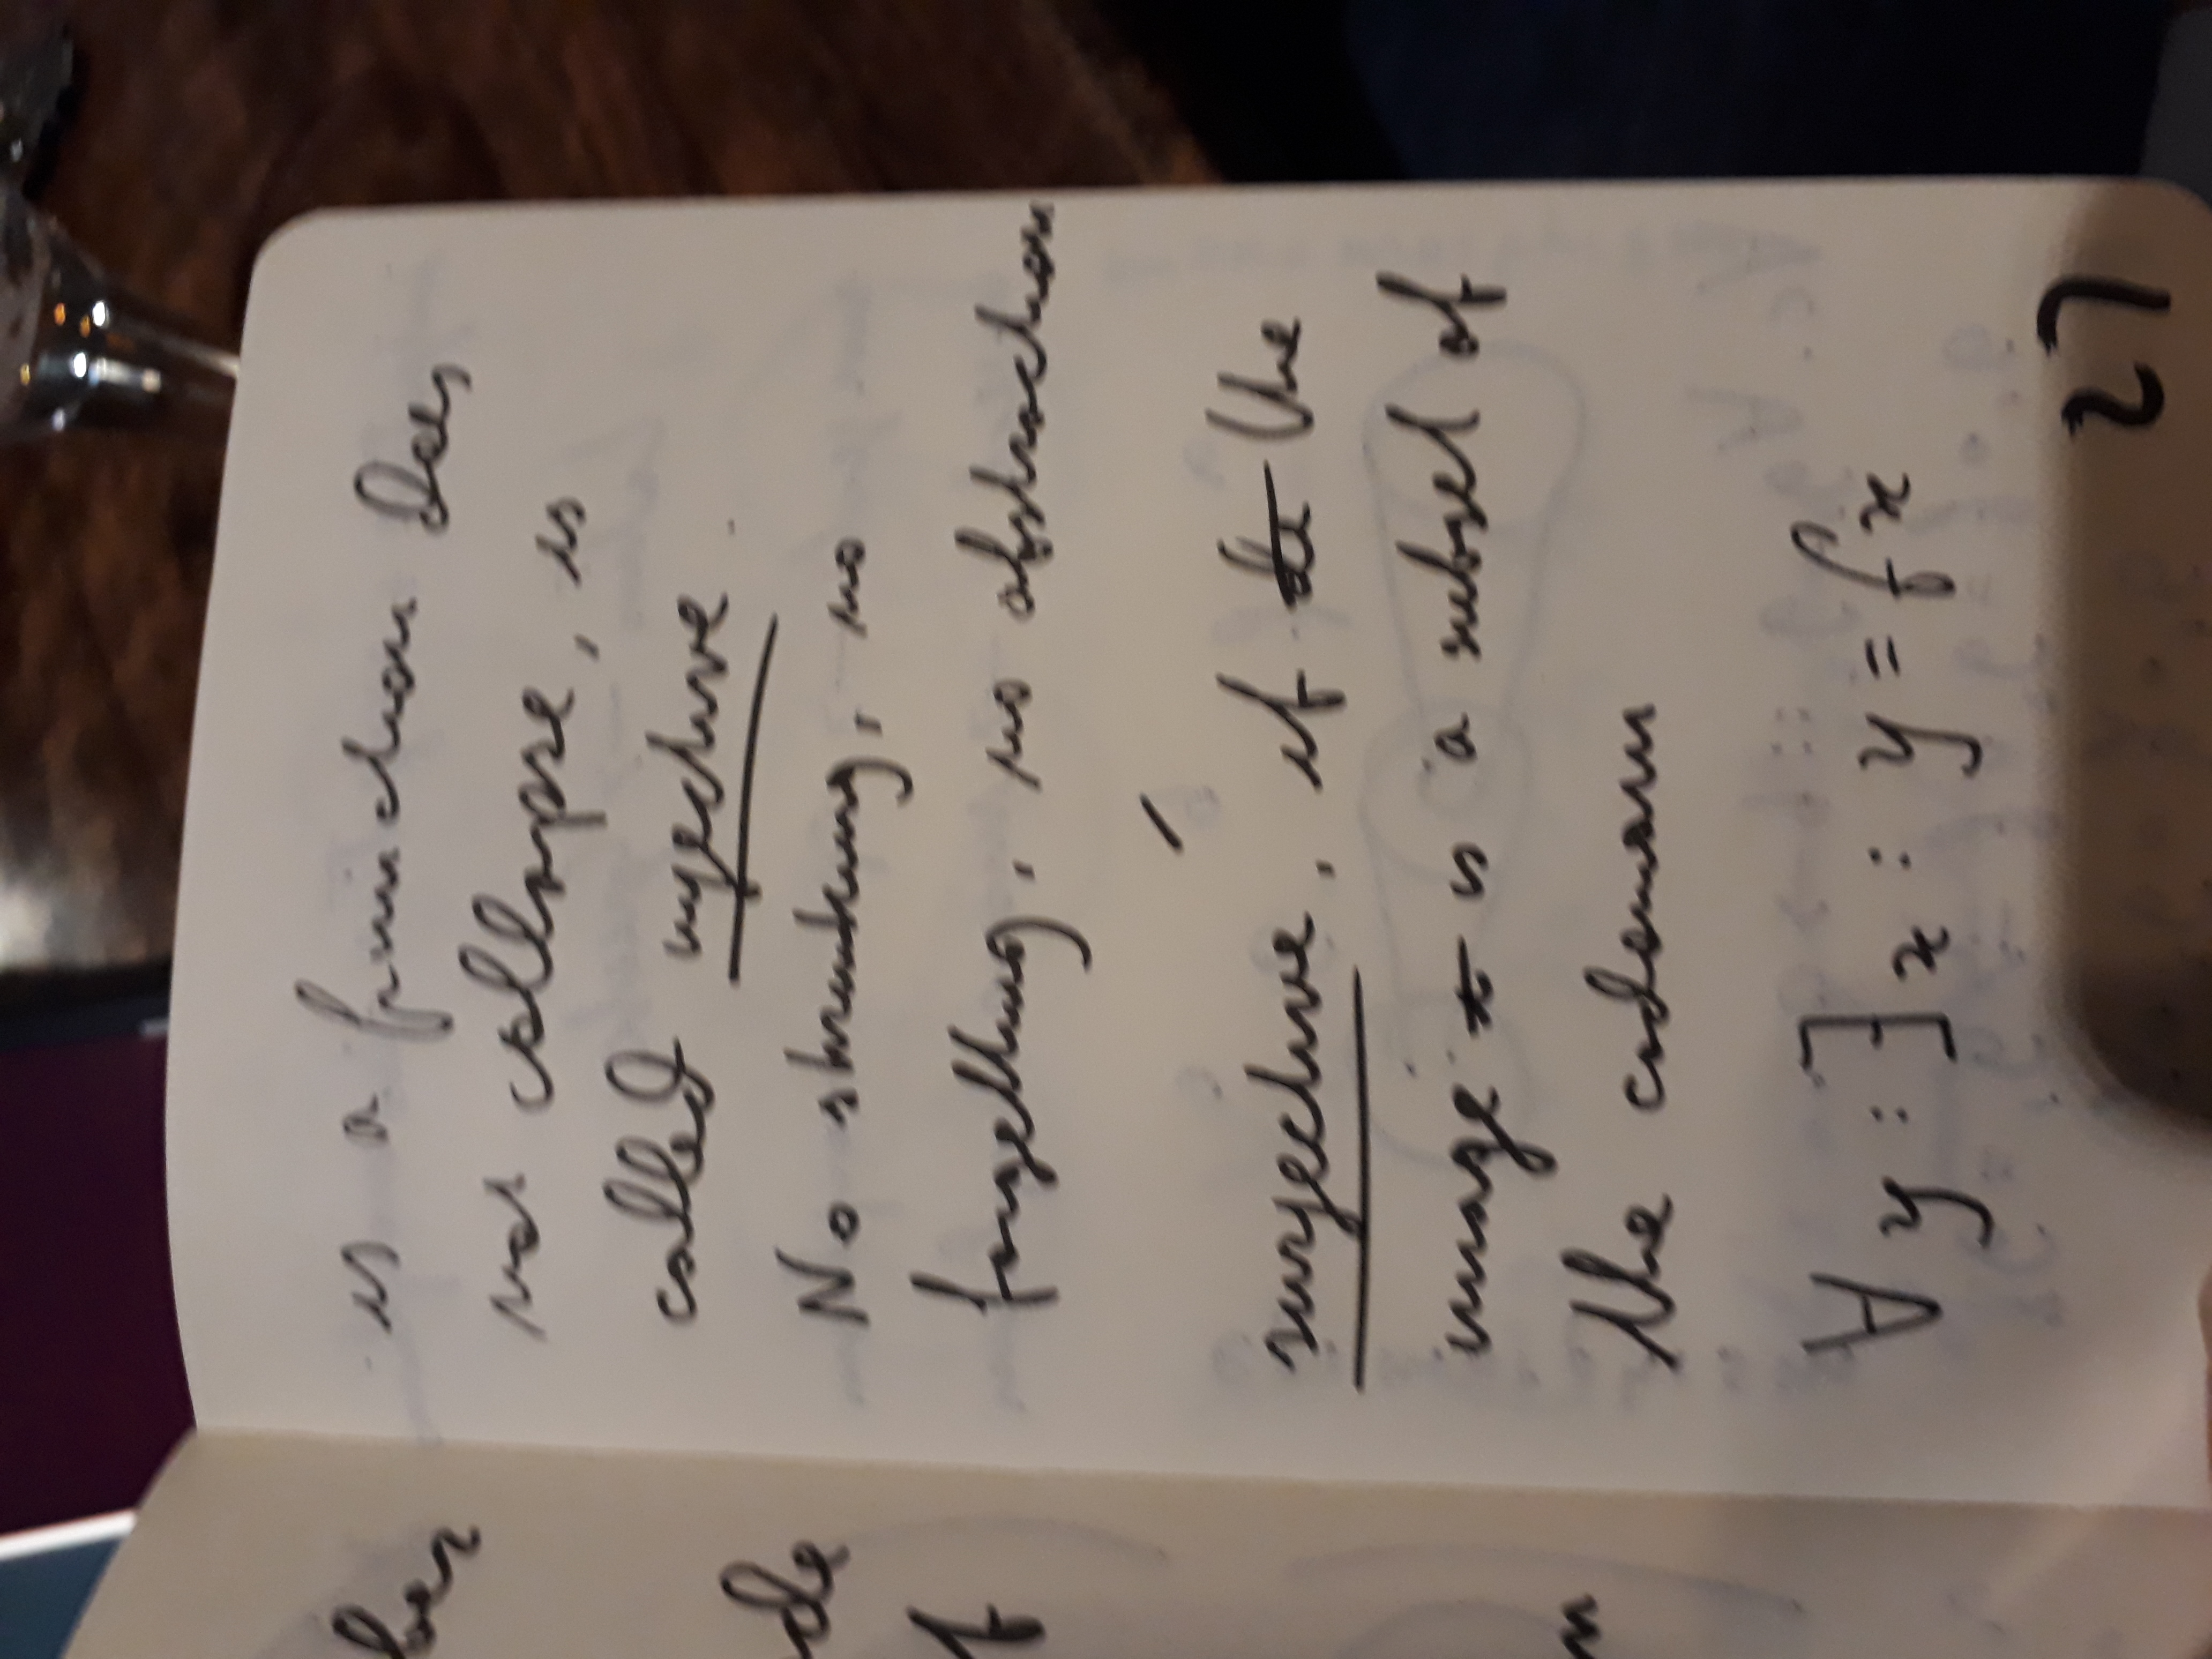 is a function does
not collapse, is
called injective.
No shrinking, no
forgetting, no abstraction
surjective, if the
image is a subset of
the codomain
∀y : ∃x : y = fx
27
ber
de
f
m